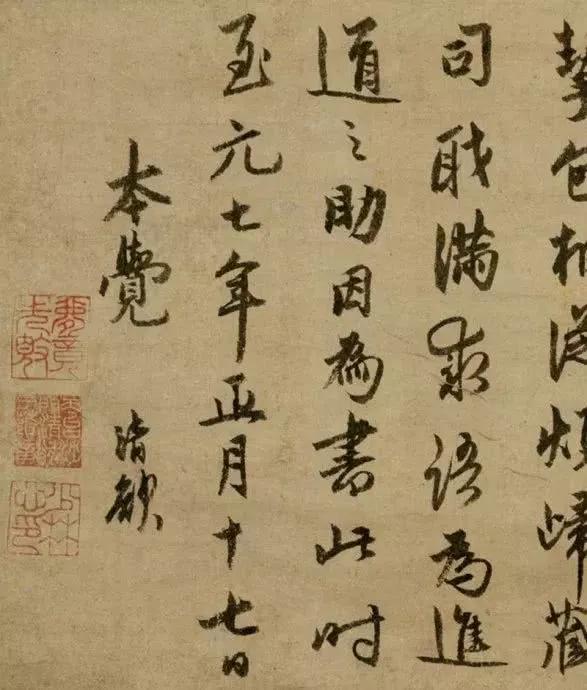 包相從歸藏
司職滿求語為進
道之助因為書此时
至元七年正月十七日
本覺 清欲